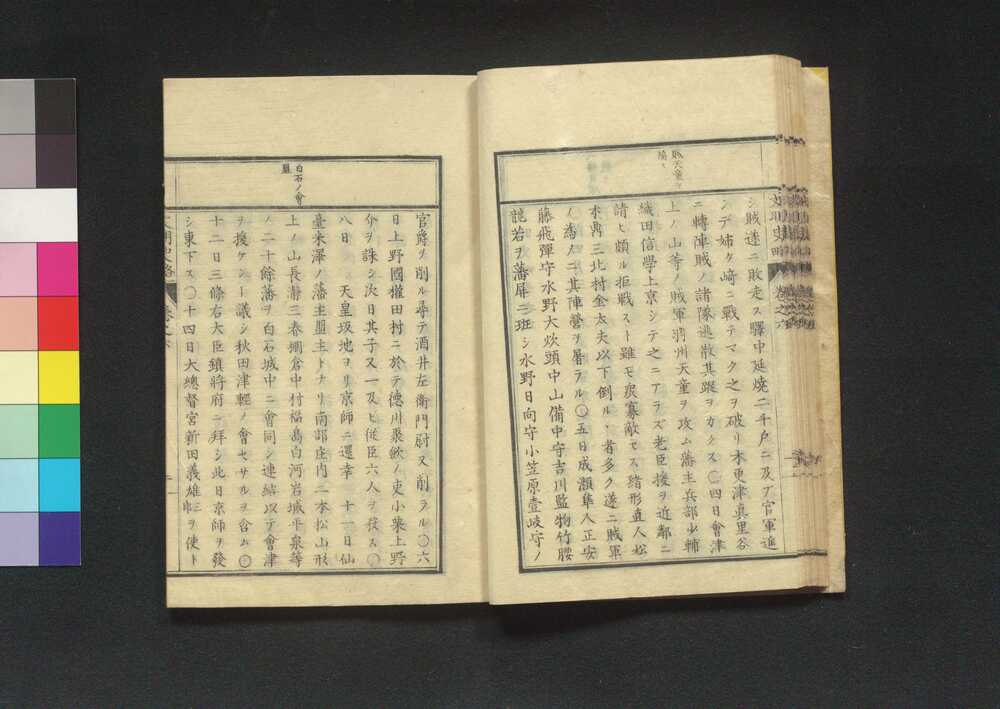 シ賊遂ニ敗走ス驛中延燒二千戸ニ及ブ官軍進
ンデ姉ケ﨑ニ戰テマタ之ヲ破リ木更津真里谷
ニ轉陣賊ノ諸隊逃散其蹤ヲカクス〇四日會津
上ノ山等ノ賊軍羽州天童ヲ攻ム藩主兵部少輔
織田信學上京シテ之ニアラズ老臣援ヲ近鄰ニ
請ヒ頗ル拒戰スト雖モ衆寡敵セス緒形直人松
本鼎三北村金太夫以下倒ルヽ者多ク遂ニ賊軍
ノ為メニ其陣營ヲ畧ラル〇五日成瀬隼人正安
藤飛彈守水野大炊頭中山備中守吉川監物竹腰
龍若ヲ藩屏ニ班シ水野日向守小笠原壹岐守ノ
官爵ヲ削ル尋テ酒井左衛門尉又削ラル〇六
日上野國權田村ニ於テ德川聚歛ノ吏小栗上野
介ヲ誅シ次日其子又一及ヒ従臣六人ヲ殺ス〇
八日　天皇坂地ヨリ京師ニ還幸　十一日仙
臺米澤ノ藩主盟主トナリ南部庄内二本松山形
上ノ山長瀞三春棚倉中村福島白河岩城平泉等
ノ二十餘藩ヲ白石城中ニ會同シ連結以テ會津
ヲ援ケント議シ秋田津輕ノ會セサルヲ含ム〇
十二日三條右大臣鎮將府ニ拜シ此日京師ヲ發
シ東下ス〇十四日大總督宮新田義雄ヲ使ト
白石ノ會
盟